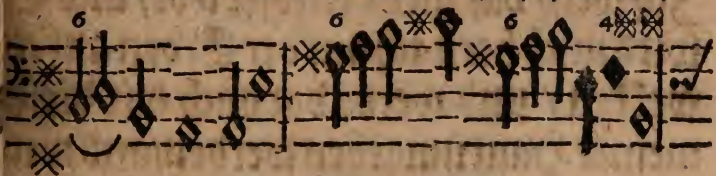 6 6 6 4